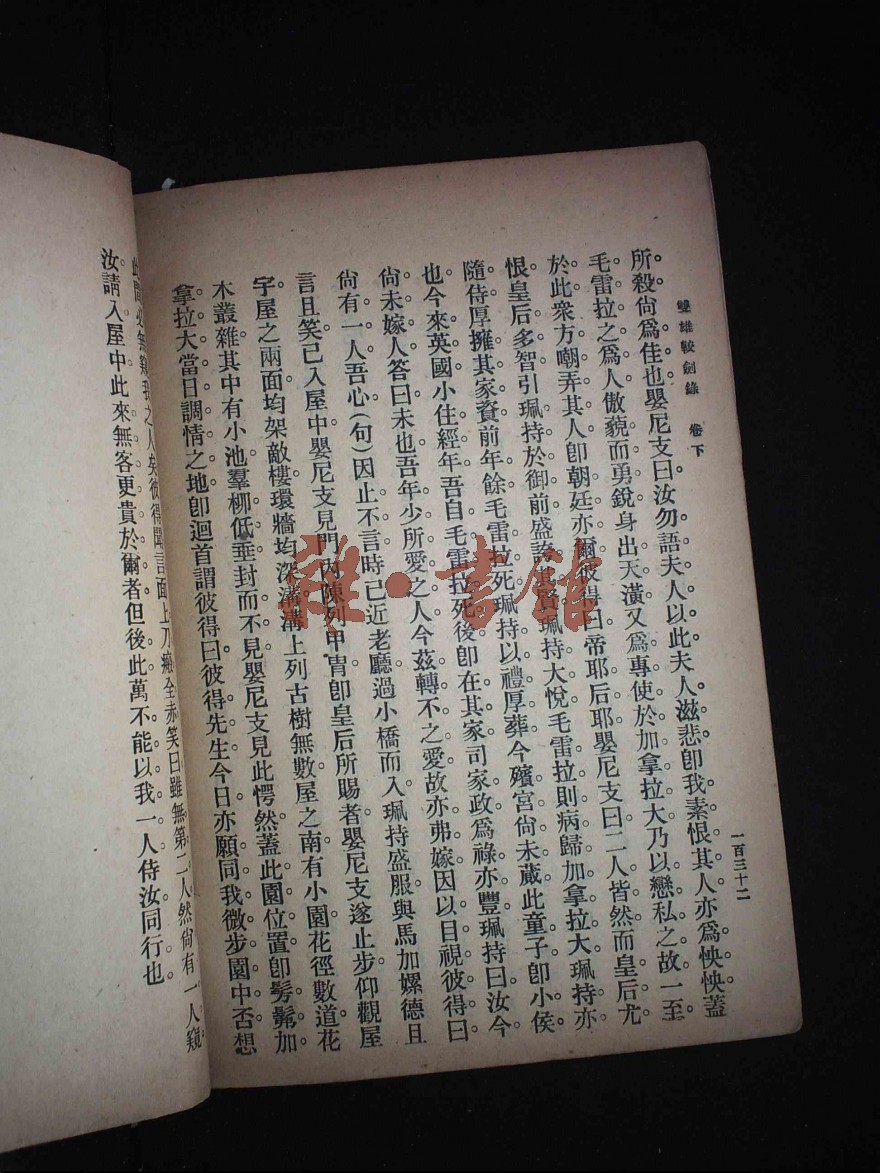 雙雄較劍錄 卷下
一百三十二
所殺尙爲佳也嬰尼支曰汝勿語夫人以此夫人滋悲卽我素恨其人亦爲怏怏蓋
毛雷拉之爲人傲藐而勇銳身出天潢又爲專使於加拿拉大乃以戀私之故一至
於此衆方嘲弄其人卽朝廷亦爾彼得曰帝耶后耶嬰尼支曰二人皆然而皇后尤
恨。皇后多智引珮持於御前盛誇其賢珮持大悅毛雷拉則病歸加拿拉大珮持亦
隨侍厚擁其家資前年餘毛雷拉死珮持以禮厚葬今殯宮尙未蕆此童子卽小侯
也今來英國小住經年吾自毛雷拉死後卽在其家司家政爲祿亦豐珮持曰汝今
尙未嫁人答曰未也吾年少所愛之人今茲轉不之愛故亦弗嫁因以目視彼得曰
尙有一人吾心(句)因止不言時己近老廳過小橋而入珮持盛服與馬加嫘德且
言且笑己入屋中嬰尼支見門內陳列甲冑卽皇后所賜者嬰尼支遂止步仰觀屋
宇屋之兩面均架敵樓環牆均深溝溝上列古樹無數屋之南有小園花徑數道花
木叢雜其中有小池羣柳低垂封而不見嬰尼支見此愕然蓋此園位置卽髣髴加
拿拉大當日調情之地卽迴首謂彼得曰彼得先生今日亦願同我微步園中否想
此間必無窺我之人矣彼得聞言面上刀瘢全赤笑曰雖無第二人然尙有一人窺
汝。請入屋中此來無客更貴於爾者但後此萬不能以我一人侍汝同行也。
雜·書館